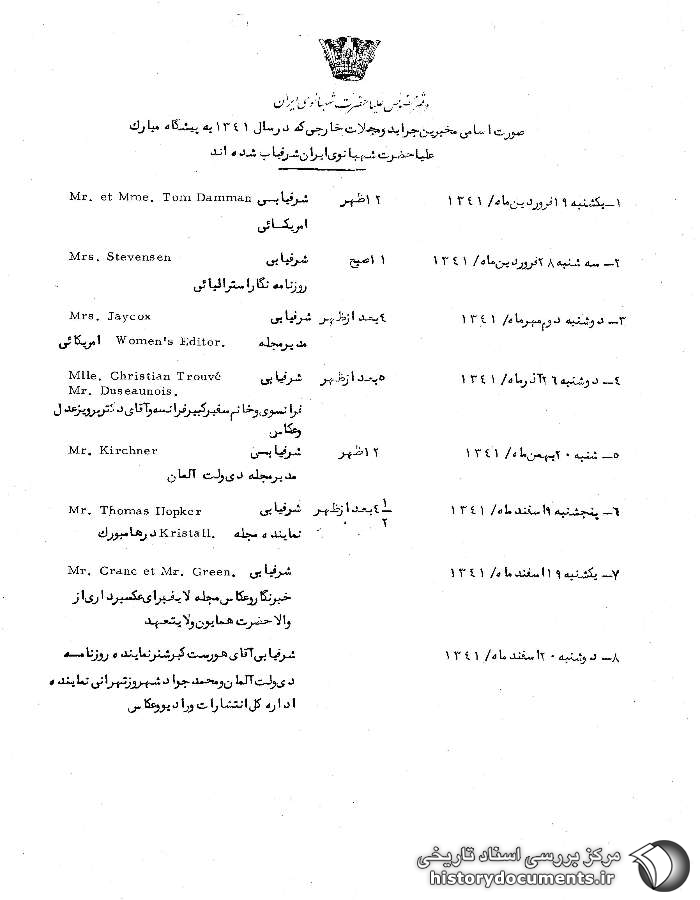 دفتر مخصوص علیاحضرت شهبانوی ایران
صورت اسامی مخبرین جراید ومجلات خارجی که در سال ۱۳۴۱ به پیشگاه مبارک
علیاحضرت شهبانوی ایران شرفیاب شده اند
۱- یکشنبه ۱۹ فروردین ماه/ ۱۳۴۱ ۱۲ ظهر شرفیابی Mr. et Mme. Tom Damman
امریکائی
۲- سه شنبه ۲۸ فروردین ماه/ ۱۳۴۱ ۱۱ صبح شرفیابی Mrs. Stevensen
روزنامه نگار استرالیائی
۳- دوشنبه دوم مهرماه/ ۱۳۴۱ ۴ بعد ازظهر شرفیابی Mrs. Jaycox
مدیرمجله Women's Editor. امریکائی
۴- دوشنبه ۲۶ آذرماه/ ۱۳۴۱ ۵ بعد ازظهر شرفیابی Mlle. Christian Trouvé
Mr. Duseaunois.
فرانسوی و خانم سفیرکبیر فرانسه وآقای دکتر پرویز عدل
وعکاس
۵- شنبه ۲۰ بهمن ماه/ ۱۳۴۱ ۱۲ ظهر شرفیابی Mr. Kirchner
مدیرمجله دی ولت آلمان
۶- پنجشنبه ۹ اسفند ماه/ ۱۳۴۱ ۴ ۱/۲ بعد ازظهر شرفیابی Mr. Thomas Hopker
نماینده مجله Kristall. در هامبورک
۷- یکشنبه ۱۹ اسفند ماه/ ۱۳۴۱ شرفیابی Mr. Crane et Mr. Green.
خبرنگار وعکاس مجله لایف برای عکسبرداری از
والاحضرت همایون ولایتعهد
۸- دوشنبه ۲۰ اسفند ماه/ ۱۳۴۱ شرفیابی آقای هورست کیرشنر نماینده روزنامه
دی ولت آلمان ومحمد جواد شهروز تهرانی نماینده
اداره کل انتشارات ورادیو وعکاس
مرکز بررسی اسناد تاریخی
historydocuments.ir